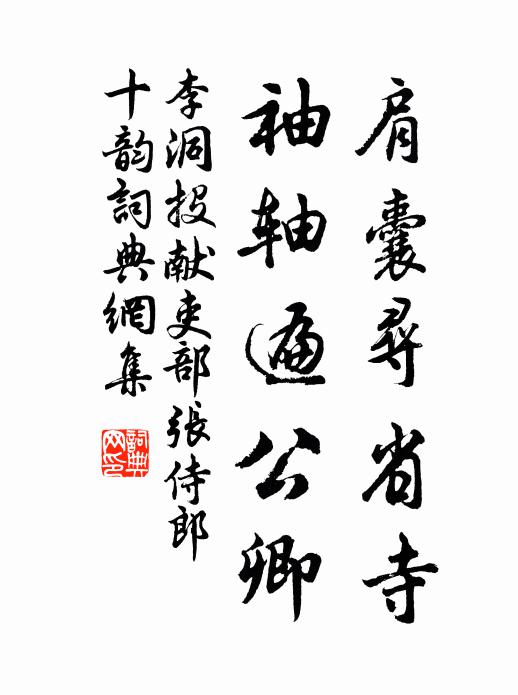 肩囊尋省寺
袖轴遍公卿
李洞投献吏部張侍郎
十韵詞典網集
詞典网印